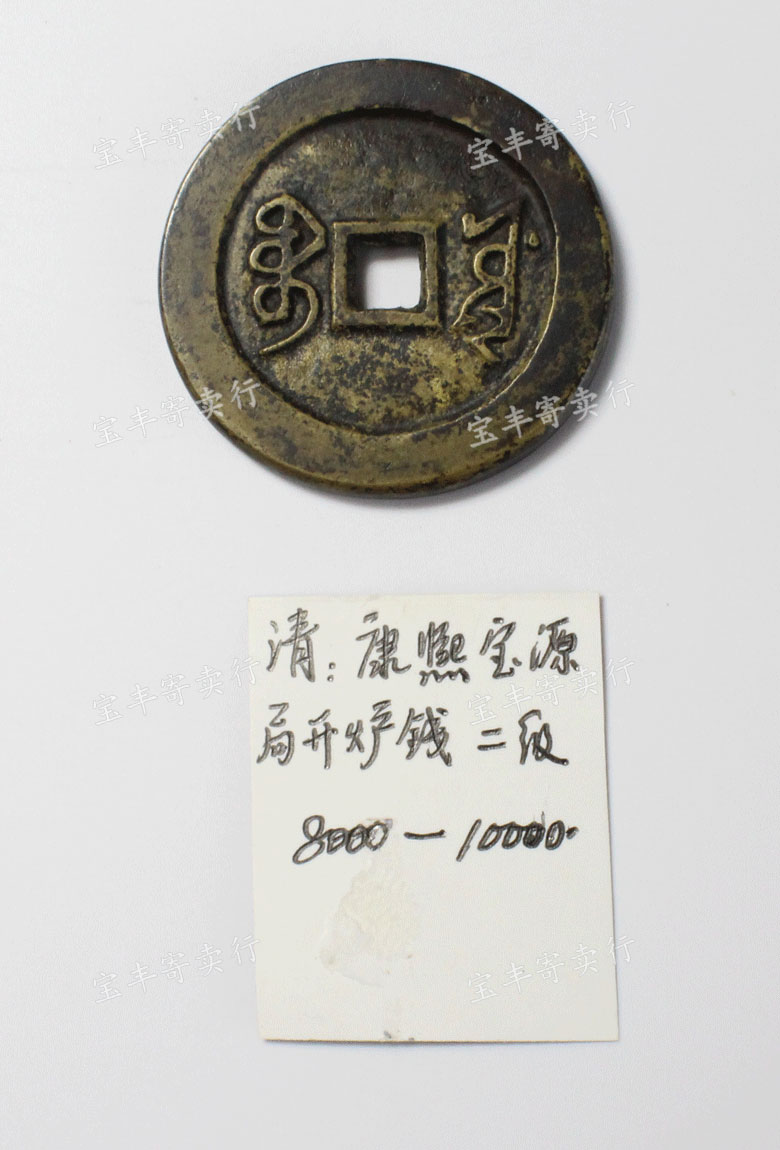 宝丰寄卖行 宝丰寄卖行
宝丰寄卖行 宝丰寄卖行
清:康熙宝源
宝丰寄卖行 宝丰寄卖行
局开炉钱 二级
8000—10000.
宝丰寄卖行 宝丰寄卖行